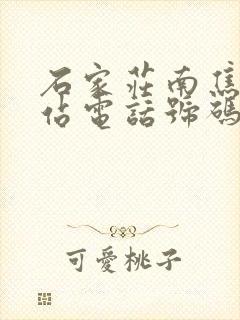 石家莊南焦
佔電話號碼
可愛桃子